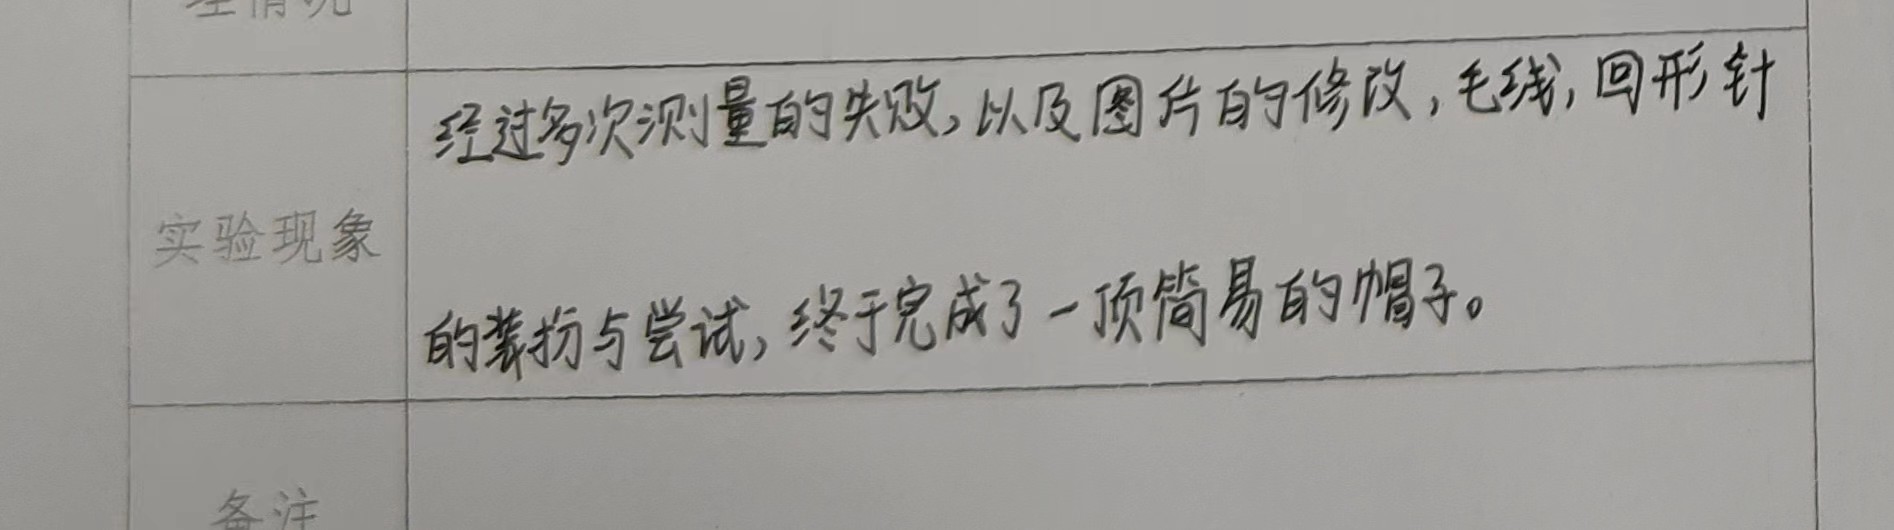 理情况
经过多次测量的失败,以及图片的修改,毛线,回形针
实验现象
的装扮与尝试,终于完成了一顶简易的帽子。
备注